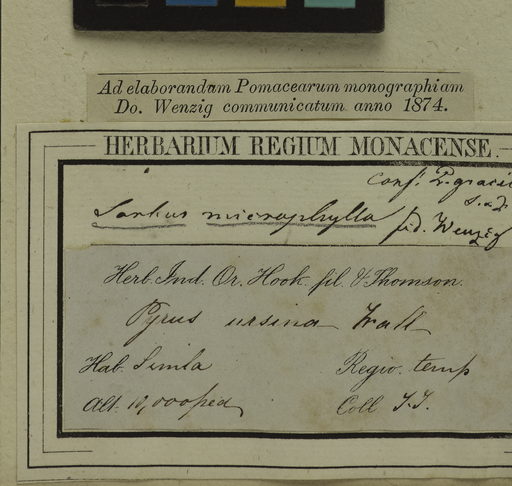 Ad elaborandam Pomacearum monographiam
Do. Wenzig communicatum anno 1874.
HERBARIUM REGIUM MONACENSE.
Conf. P. graci
S. & Z.
Sorbus microphylla
fid. Wenzig
Herb. Ind. Or. Hook. fil. & Thomson.
Pyrus ursina Wall
Hab. Simla
Regio. temp
Alt. 10,000 ped
Coll T.T.